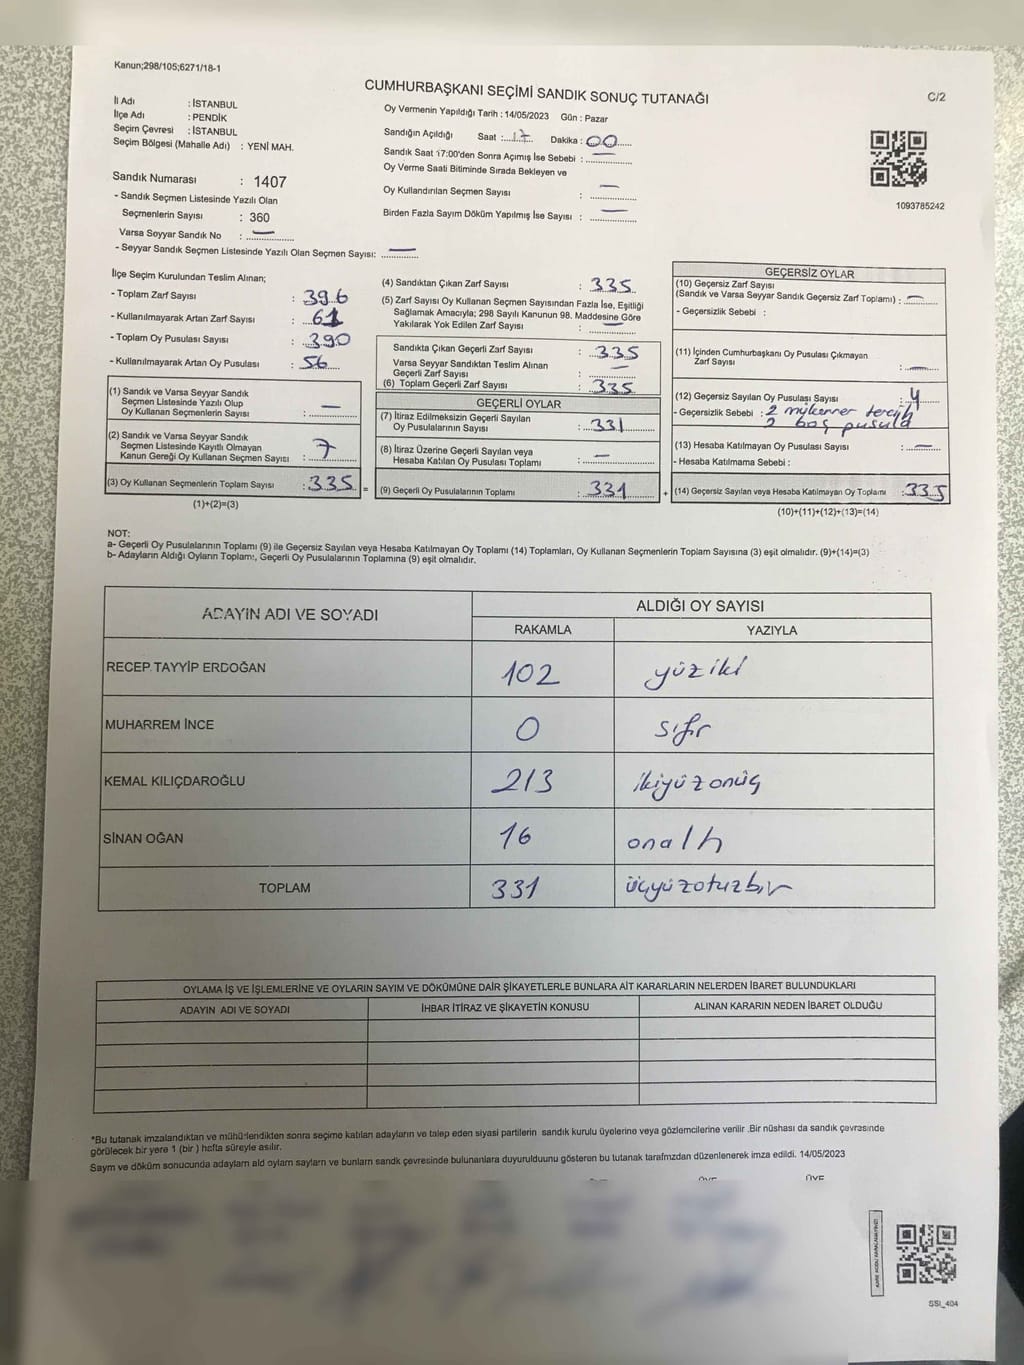 Kanun;298/105;6271/18-1
CUMHURBAŞKANI SEÇİMİ SANDIK SONUÇ TUTANAĞI
C/2
İl Adı : İSTANBUL
İlçe Adı : PENDİK
Seçim Çevresi : İSTANBUL
Seçim Bölgesi (Mahalle Adı) : YENİ MAH.
Sandık Numarası : 1407
- Sandık Seçmen Listesinde Yazılı Olan
Seçmenlerin Sayısı : 360
Varsa Seyyar Sandık No : —
- Seyyar Sandık Seçmen Listesinde Yazılı Olan Seçmen Sayısı: —
Oy Vermenin Yapıldığı Tarih : 14/05/2023 Gün : Pazar
Sandığın Açıldığı Saat : 17 Dakika : 00
Sandık Saat 17:00'den Sonra Açımış İse Sebebi : —
Oy Verme Saati Bitiminde Sırada Bekleyen ve
Oy Kullandırılan Seçmen Sayısı : —
Birden Fazla Sayım Döküm Yapılmış İse Sayısı : —
1093785242
İlçe Seçim Kurulundan Teslim Alınan;
- Toplam Zarf Sayısı : 396
- Kullanılmayarak Artan Zarf Sayısı : 61
- Toplam Oy Pusulası Sayısı : 390
- Kullanılmayarak Artan Oy Pusulası : 56
(1) Sandık ve Varsa Seyyar Sandık
Seçmen Listesinde Yazılı Olup
Oy Kullanan Seçmenlerin Sayısı : —
(2) Sandık ve Varsa Seyyar Sandık
Seçmen Listesinde Kayıtlı Olmayan
Kanun Gereği Oy Kullanan Seçmen Sayısı : 7
(3) Oy Kullanan Seçmenlerin Toplam Sayısı : 335 =
(1)+(2)=(3)
(4) Sandıktan Çıkan Zarf Sayısı : 335
(5) Zarf Sayısı Oy Kullanan Seçmen Sayısından Fazla İse, Eşitliği
Sağlamak Amacıyla; 298 Sayılı Kanunun 98. Maddesine Göre
Yakılarak Yok Edilen Zarf Sayısı : —
Sandıkta Çıkan Geçerli Zarf Sayısı : 335
Varsa Seyyar Sandıktan Teslim Alınan
Geçerli Zarf Sayısı : —
(6) Toplam Geçerli Zarf Sayısı : 335
GEÇERLİ OYLAR
(7) İtiraz Edilmeksizin Geçerli Sayılan
Oy Pusulalarının Sayısı : 331
(8) İtiraz Üzerine Geçerli Sayılan veya
Hesaba Katılan Oy Pusulası Toplamı : —
(9) Geçerli Oy Pusulalarının Toplamı : 331 +
GEÇERSİZ OYLAR
(10) Geçersiz Zarf Sayısı
(Sandık ve Varsa Seyyar Sandık Geçersiz Zarf Toplamı) : —
- Geçersizlik Sebebi :
(11) İçinden Cumhurbaşkanı Oy Pusulası Çıkmayan
Zarf Sayısı : —
(12) Geçersiz Sayılan Oy Pusulası Sayısı : 4
- Geçersizlik Sebebi : 2 mükerrer tercih
2 boş pusula
(13) Hesaba Katılmayan Oy Pusulası Sayısı : —
- Hesaba Katılmama Sebebi :
(14) Geçersiz Sayılan veya Hesaba Katılmayan Oy Toplamı : 335
(10)+(11)+(12)+(13)=(14)
NOT:
a- Geçerli Oy Pusulalarının Toplamı (9) ile Geçersiz Sayılan veya Hesaba Katılmayan Oy Toplamı (14) Toplamları, Oy Kullanan Seçmenlerin Toplam Sayısına (3) eşit olmalıdır. (9)+(14)=(3)
b- Adayların Aldığı Oyların Toplamı, Geçerli Oy Pusulalarının Toplamına (9) eşit olmalıdır.
ADAYIN ADI VE SOYADI
ALDIĞI OY SAYISI
RAKAMLA YAZIYLA
RECEP TAYYİP ERDOĞAN 102 yüziki
MUHARREM İNCE 0 sıfır
KEMAL KILIÇDAROĞLU 213 ikiyüzonüç
SİNAN OĞAN 16 onaltı
TOPLAM 331 üçyüzotuzbir
OYLAMA İŞ VE İŞLEMLERİNE VE OYLARIN SAYIM VE DÖKÜMÜNE DAİR ŞİKAYETLERLE BUNLARA AİT KARARLARIN NELERDEN İBARET BULUNDUKLARI
ADAYIN ADI VE SOYADI İHBAR İTİRAZ VE ŞİKAYETİN KONUSU ALINAN KARARIN NEDEN İBARET OLDUĞU
*Bu tutanak imzalandıktan ve mühürlendikten sonra seçime katılan adayların ve talep eden siyasi partilerin sandık kurulu üyelerine veya gözlemcilerine verilir .Bir nüshası da sandık çevrasinde
görülecek bir yere 1 (bir ) hafta süreyle asılır.
Sayım ve döküm sonucunda adayların ald oyların sayları ve bunların sandk çevresinde bulunanlara duyurulduunu gösteren bu tutanak tarafmzdan düzenlenerek imza edildi. 14/05/2023
ÜYE
SSI_404